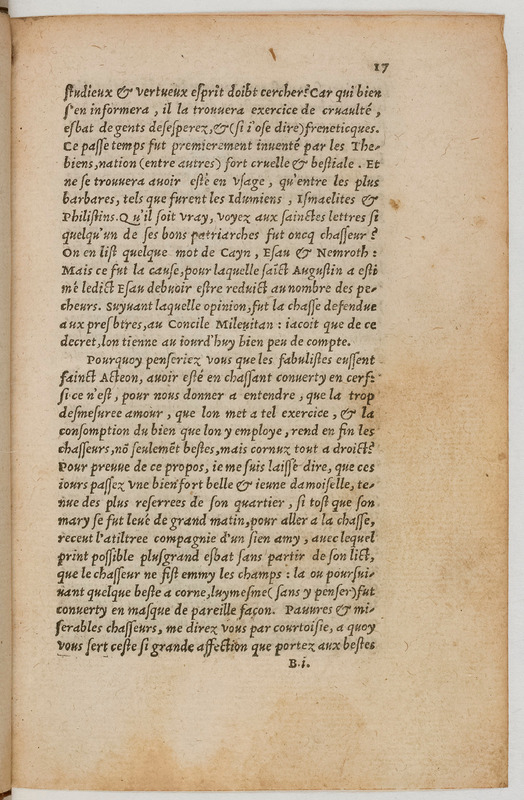 17
studieux & vertueux esprit doibt cercher? Car qui bien
s'en informera, il la trouvera exercice de cruaulté,
esbat de gents desesperez, & (si i'ose dire) freneticques.
Ce passe temps fut premierement inventé par les The-
biens, nation (entre autres) fort cruelle & bestiale. Et
ne se trouvera auoir esté en vsage, qu'entre les plus
barbares, tels que furent les Idumiens, Ismaelites &
Philistins. Qu'il soit vray, voyez aux sainctes lettres si
quelqu'un de ses bons patriarches fut oncq chasseur?
On en list quelque mot de Cayn, Esau & Nemroth:
Mais ce fut la cause, pour laquelle saict Augustin a esti
mé ledict Esau debuoir estre reduict au nombre des pe-
cheurs. Suyuant laquelle opinion, fut la chasse defendue
aux presbtres, au Concile Mileuitan: iacoit que de ce
decret, lon tienne au iourd'huy bien peu de compte.
Pourquoy penseriez vous que les fabulistes eussent
fainct Acteon, auoir esté en chassant conuerty en cerf:
si ce n'est, pour nous donner a entendre, que la trop
desmesuree amour, que lon met a tel exercice, & la
consomption du bien que lon y employe, rend en fin les
chasseurs, nō seulemēt bestes, mais cornuz tout a droict?
Pour preuue de ce propos, ie me suis laissé dire, que ces
iours passez vne bien fort belle & ieune damoiselle, te-
nue des plus reserrees de son quartier, si tost que son
mary se fut leué de grand matin, pour aller a la chasse,
receut l'atiltree compagnie d'un sien amy, auec lequel
print possible plusgrand esbat sans partir de son lict,
que le chasseur ne fist emmy les champs: la ou poursui-
uant quelque beste a corne, luymesme (sans y penser) fut
conuerty en masque de pareille façon. Pauures & mi-
serables chasseurs, me direz vous par courtoisie, a quoy
vous sert ceste si grande affection que portez aux bestes
B.i.